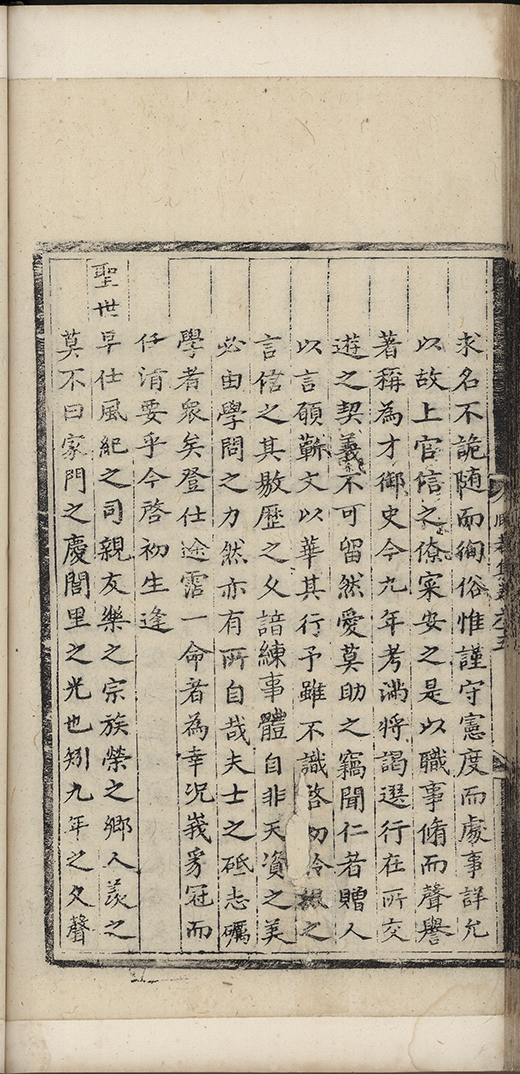 求名不詭随而徇俗惟謹守憲度而處事詳允
以故上官信之僚寀安之是以職事脩而聲譽
著稱為才御史今九年考滿將謁選行在所交
遊之契義不可留然愛莫助之竊聞仁者贈人
以言願蘄文以華其行予雖不識啓初冷椒之
言信之其敭歷之久諳練事體自非天資之美
必由學問之力然亦有所自哉夫士之砥志礪
學者衆矣登仕途霑一命者為幸况峩豸冠而
任清要乎今啓初生逢
聖世早仕風紀之司親友樂之宗族榮之鄉人羨之
莫不曰家門之慶閭里之光也矧九年之久聲